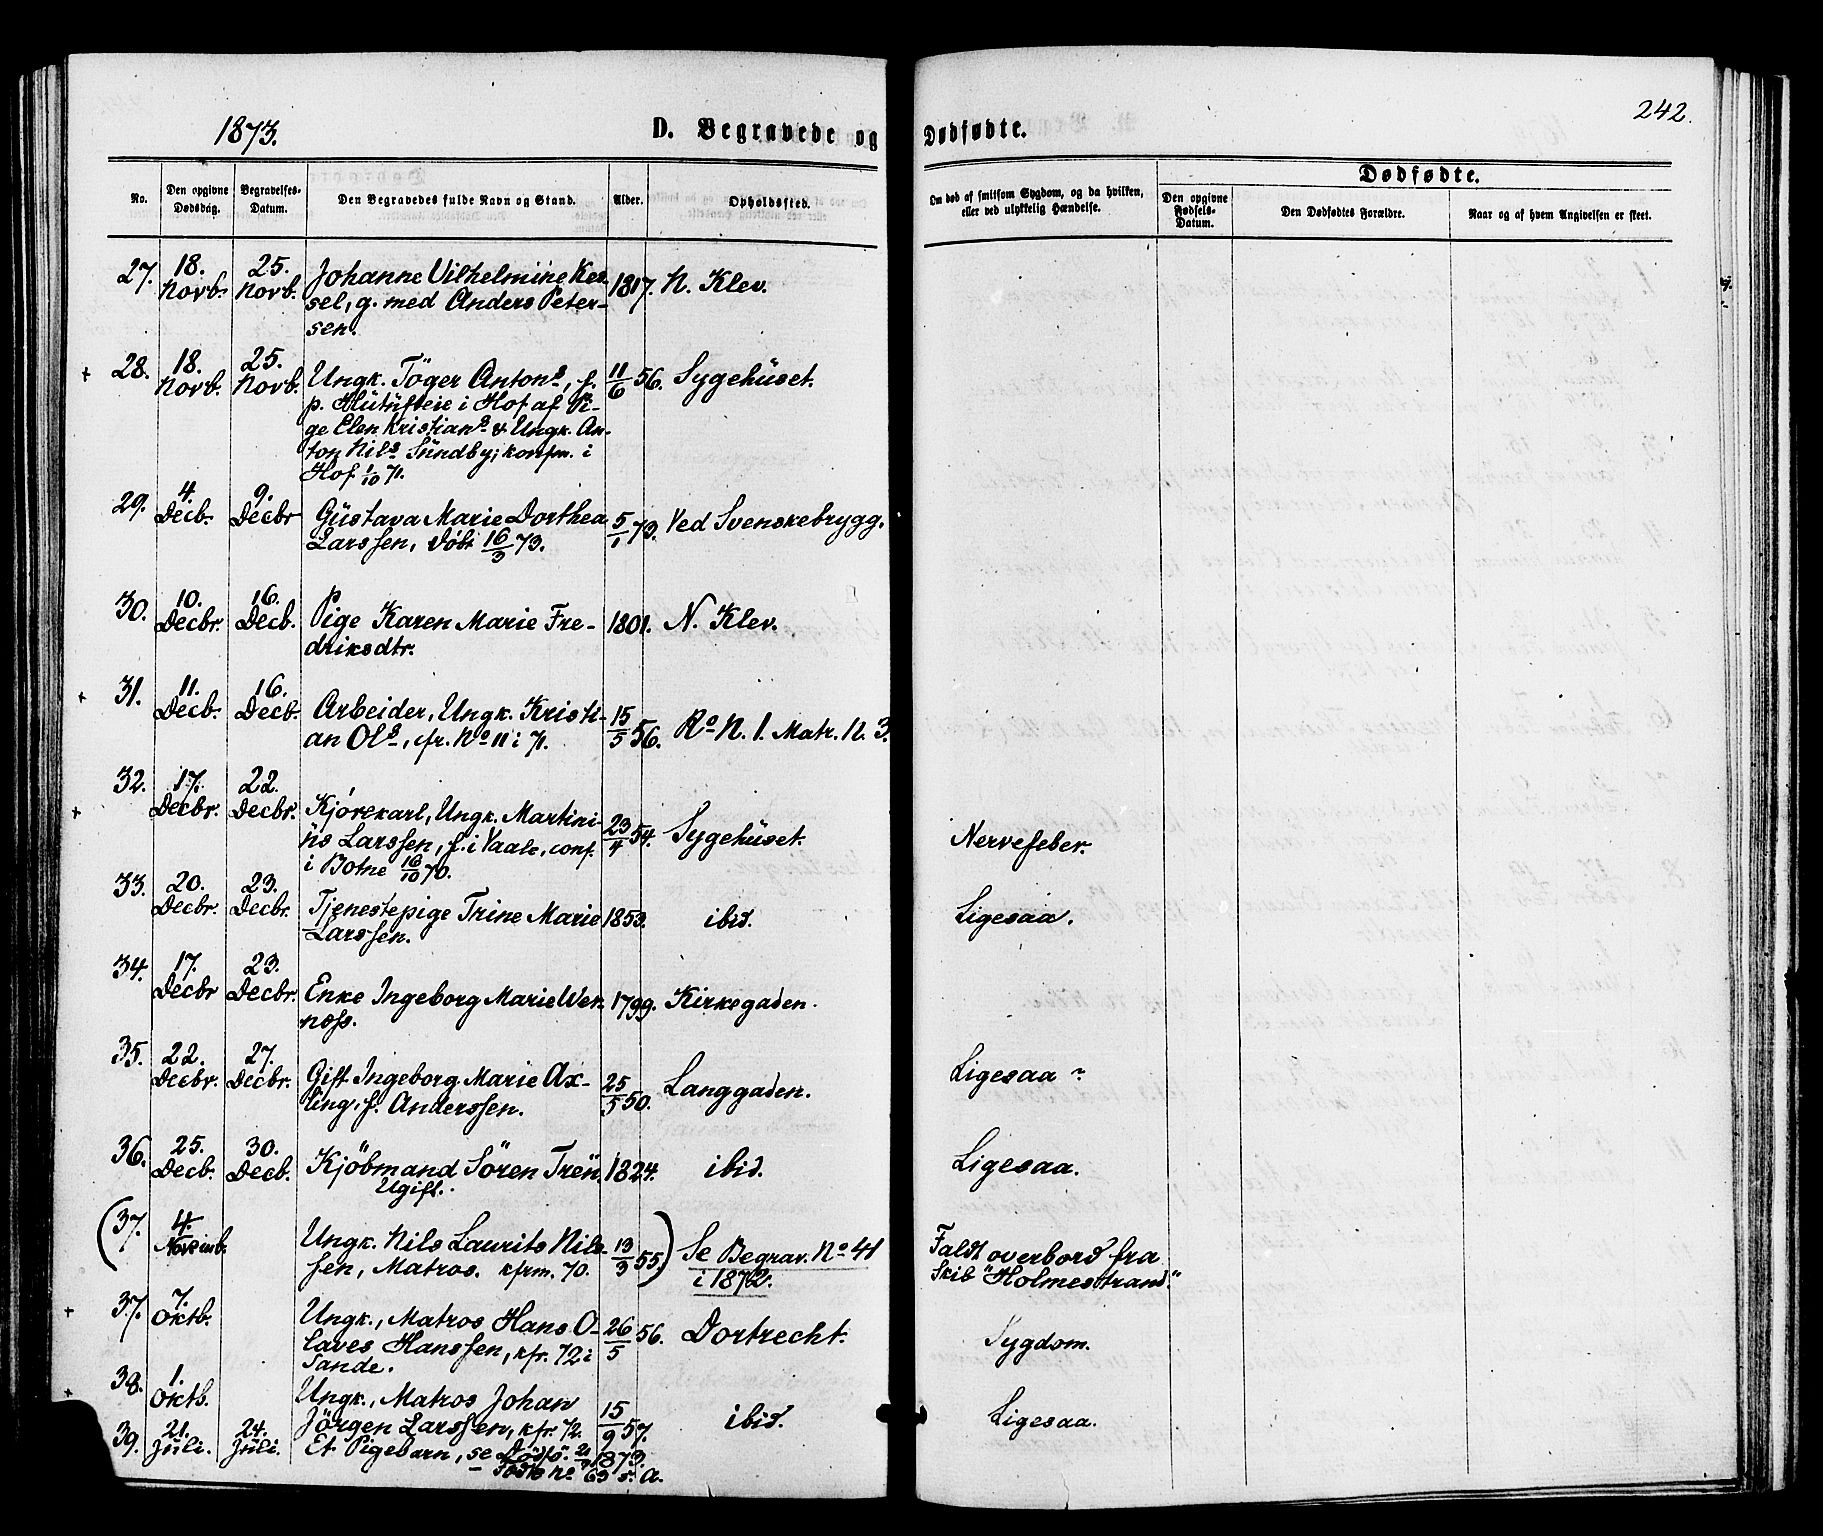 1873.
D. Begravede og Dødfødte.
242.
No.
Den opgivne Dødsdag.
Begravelses-Datum.
Den Begravedes fulde Navn og Stand.
Alder.
Opholdssted.
Om død af smitsom Sygdom, og da hvilken, eller ved ulykkelig Hændelse.
Dødfødte.
Den opgivne Fødsels-Datum.
Den Dødfødtes Forældre.
Naar og af hvem Angivelsen er skeet.
27. 18. Novb. 25. Novb. Johanne Vilhelmine Kes-
sel, g. med Anders Peter-
sen. 1817. N. Klev.
28. 18. Novb. 25. Novb. Ungk. Töger Antons, f.
p. i Hof af Pi-
ge Elen Kristians & Ungk. An-
ton Nils Sundby; konfm. i
Hof 1/10 71. 11/6 56. Sygehüset.
29. 4. Decb. 9. Decbr Güstava Marie Dorthea
Larssen, døbt 16/3 73. 5/1 73. Ved Svenskebrygg.
30. 10. Decbr. 16. Decb. Pige Karen Marie Fre-
driksdtr. 1801. N. Klev.
31. 11. Decb. 16. Decb. Arbeider, Ungk. Kristi-
an Ols, cfr. No 11 i 71. 15/5 56. Ro N. 1. Matr. N. 3.
32. 17. Decbr. 22. Decbr. Kjørekarl, Ungk. Martini-
üs Larssen, f. i Vaale, conf.
i Botne 16/10 70. 23/4 54. Sygehüset. Nervefeber.
33. 20. Decbr. 23. Decbr. Tjenestepige Trine Marie
Larssen. 1853. ibid. Ligesaa.
34. 17. Decbr 23. Decbr. Enke Ingeborg Marie Wer-
ness. 1799. Kirkegaden.
35. 22. Decbr. 27. Decbr. Gift Ingeborg Marie Ax-
ling, f. Anderssen. 25/5 50. Langgaden. Ligesaa?
36. 25. Decb. 30. Decb. Kjöbmand Sören Treü
Ugift. 1824. ibid. Ligesaa.
(37. 4. Novemb. Ungk. Nils Laurits Nils-
sen, Matros. kfrm. 70. 13/3 55.) Se Begrav. No 41
i 1872. Faldt overbord fra
Skib "Holmestrand."
37. 7. Oktb. Ungk., Matros Hans O-
laves Hanssen, kfr. 72 i
Sande. 26/5 56. Dortrecht. Sygdom.
38. 1. Oktb. Ungk., Matros Johan
Jörgen Larssen, kfr. 72. 15/9 57. ibid. Ligesaa.
39. 21. Jüli. 24. Jüli. Et Pigebarn, se Dödfö. 21/7 1873.
Födte no 63 s. A.